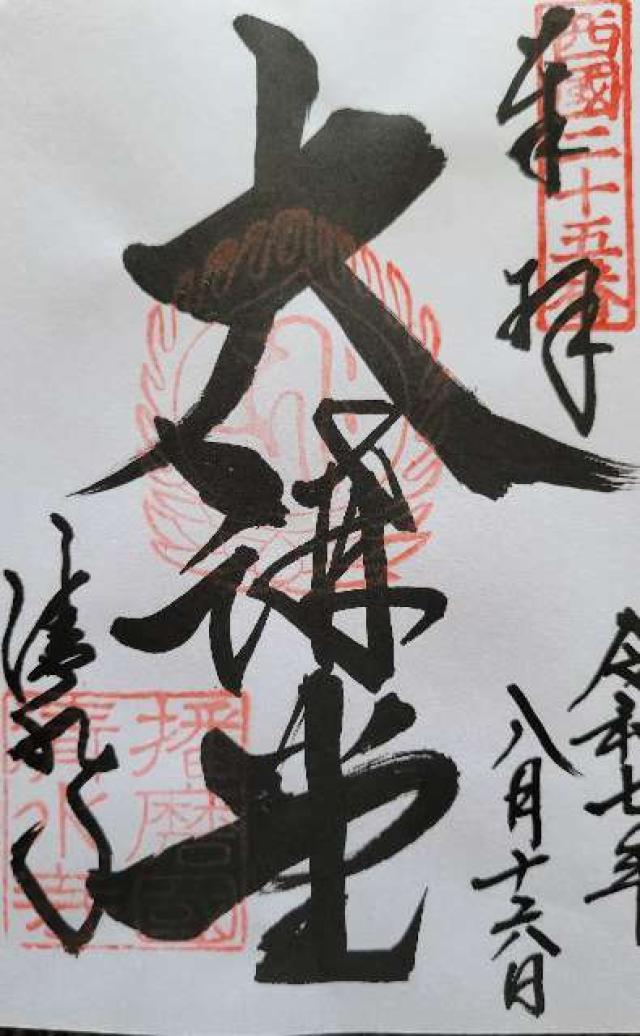 西國二十五番
奉拝
令和七年
八月十六日
大講堂
清水寺
播磨國
清水寺